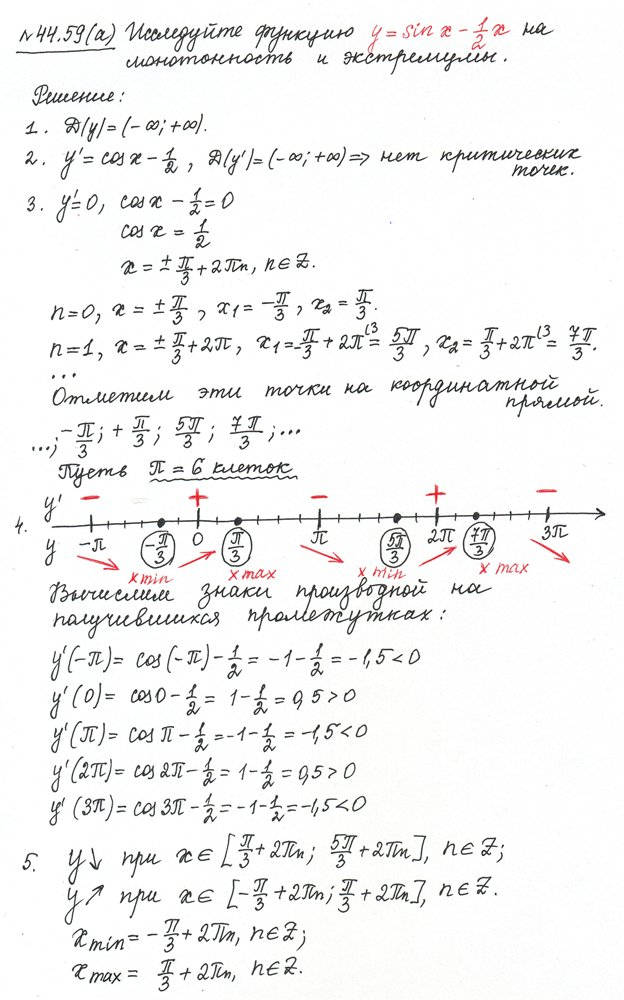 №44.59(а) Исследуйте функцию y = sin x - 1/2 x на
монотонность и экстремумы.
Решение:
1. D(y) = (-∞; +∞).
2. y' = cos x - 1/2, D(y') = (-∞; +∞) => нет критических
точек.
3. y' = 0, cos x - 1/2 = 0
cos x = 1/2
x = ± π/3 + 2πn, n ∈ Z.
n = 0, x = ± π/3, x₁ = -π/3, x₂ = π/3.
n = 1, x = ± π/3 + 2π, x₁ = -π/3 + 2π^(3 = 5π/3, x₂ = π/3 + 2π^(3 = 7π/3.
...
Отметим эти точки на координатной
прямой.
...; -π/3; + π/3; 5π/3; 7π/3; ...
Пусть π = 6 клеток
y' - + - + -
4.
y -π -π/3 0 π/3 π 5π/3 2π 7π/3 3π
x min x max x min x max
Вычислим знаки производной на
получившихся промежутках:
y'(-π) = cos(-π) - 1/2 = -1 - 1/2 = -1,5 < 0
y'(0) = cos0 - 1/2 = 1 - 1/2 = 0,5 > 0
y'(π) = cos π - 1/2 = -1 - 1/2 = -1,5 < 0
y'(2π) = cos2π - 1/2 = 1 - 1/2 = 0,5 > 0
y'(3π) = cos3π - 1/2 = -1 - 1/2 = -1,5 < 0
5. y↓ при x ∈ [π/3 + 2πn; 5π/3 + 2πn], n ∈ Z;
y↗ при x ∈ [-π/3 + 2πn; π/3 + 2πn], n ∈ Z.
x min = -π/3 + 2πn, n ∈ Z;
x max = π/3 + 2πn, n ∈ Z.